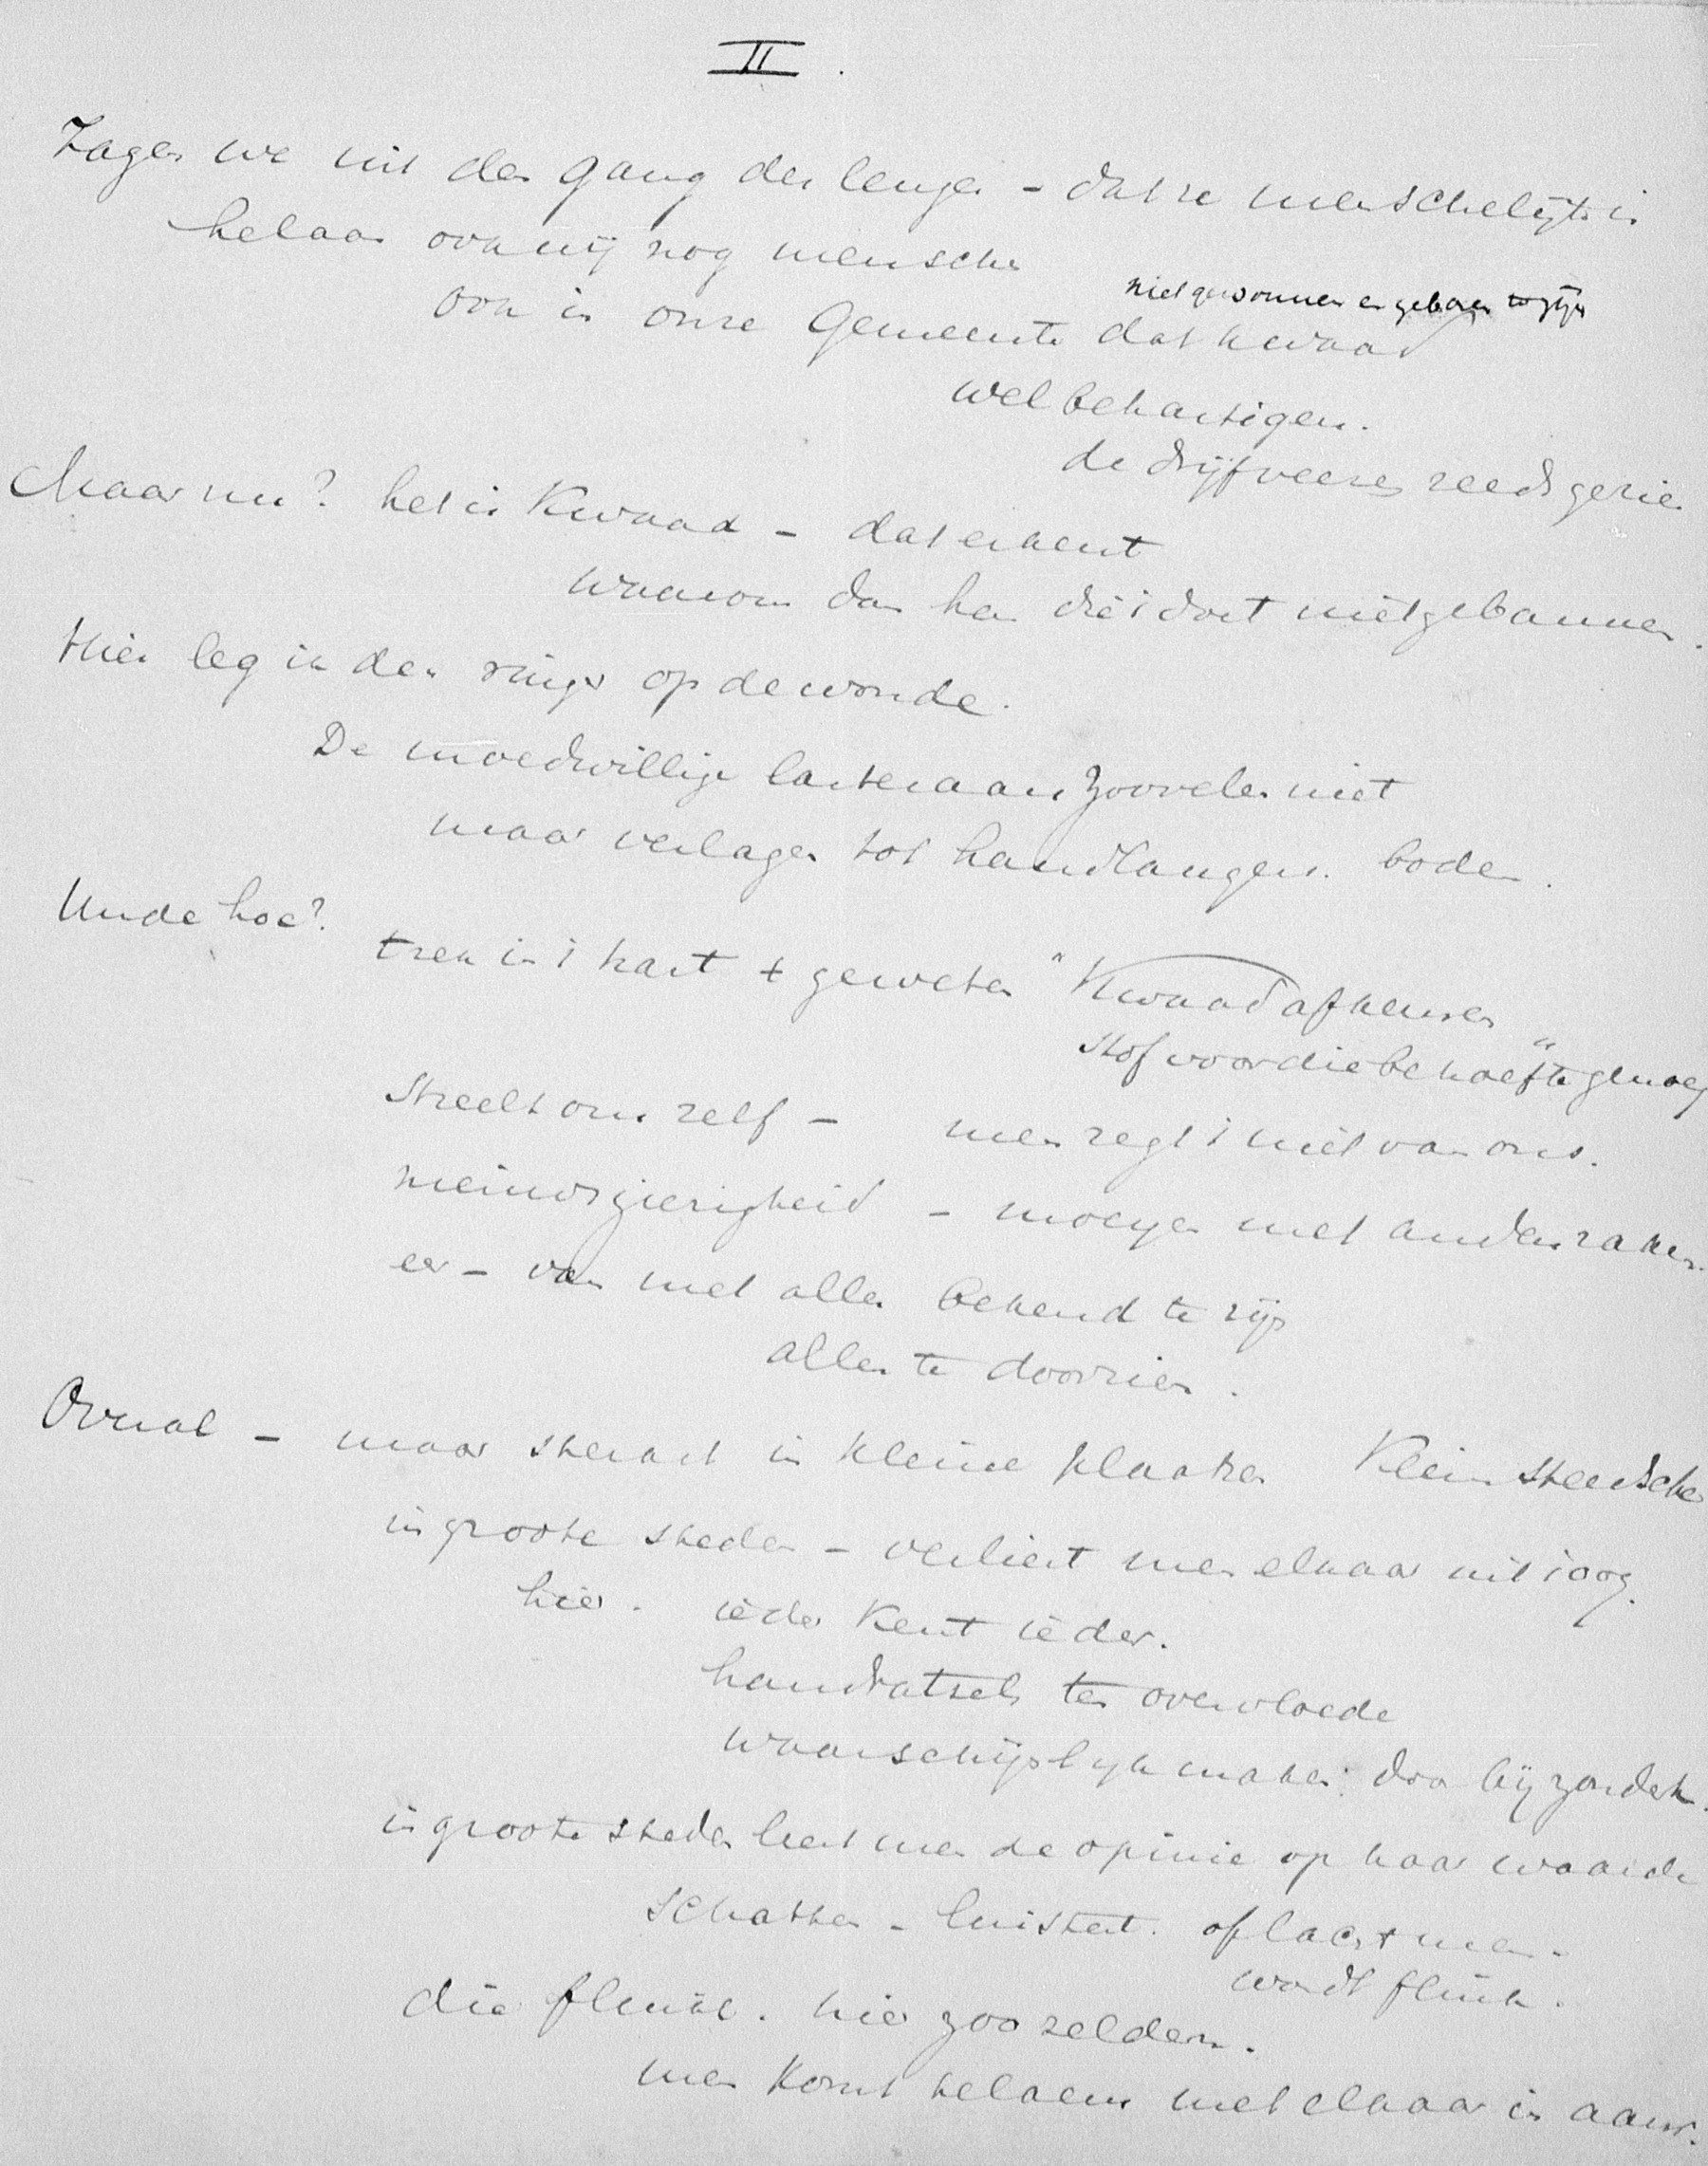 II.
Zagen we uit den gang der leugen - dat ze menschelijk is
helaas ook wij nog menschen
niet gewonnen en geboren te zijn
ook in onze Gemeente dat kwaad
welbehartigen.
de drijfveeren reeds gezien
Maar nu? het is Kwaad - dat erkent
waarom dan hen die 't doet niet gebannen.
Hier leg ik den vinger op de wonde.
De moedwillige lasteraars zoovelen niet
maar verlagen tot handlangers. boden.
Unde hoe?
trek in 't hart + geweten "Kwaad afkeuren"
stof voor die behoefte genoeg
Streelt ons zelf - men zegt 't niet van ons.
nieuwsgierigheid - moeyen met anders zaken.
eer - van met allen bekend te zijn
allen te doorzien.
Overal - maar sterkst in kleine plaatsen Klein steedsche
in groote steden - verliest men elkaar uit 't oog.
hier. ieder Kent ieder.
handvatsels ten overvloede
waarschijnlijk maken: door bijzonderh.
in groote steden leert men de opinie op haar waarde
schatten - luistert. of lacht men -
wordt flink.
die flink. hier zoo zelden.
men komt telkens met elkaar in aanr.